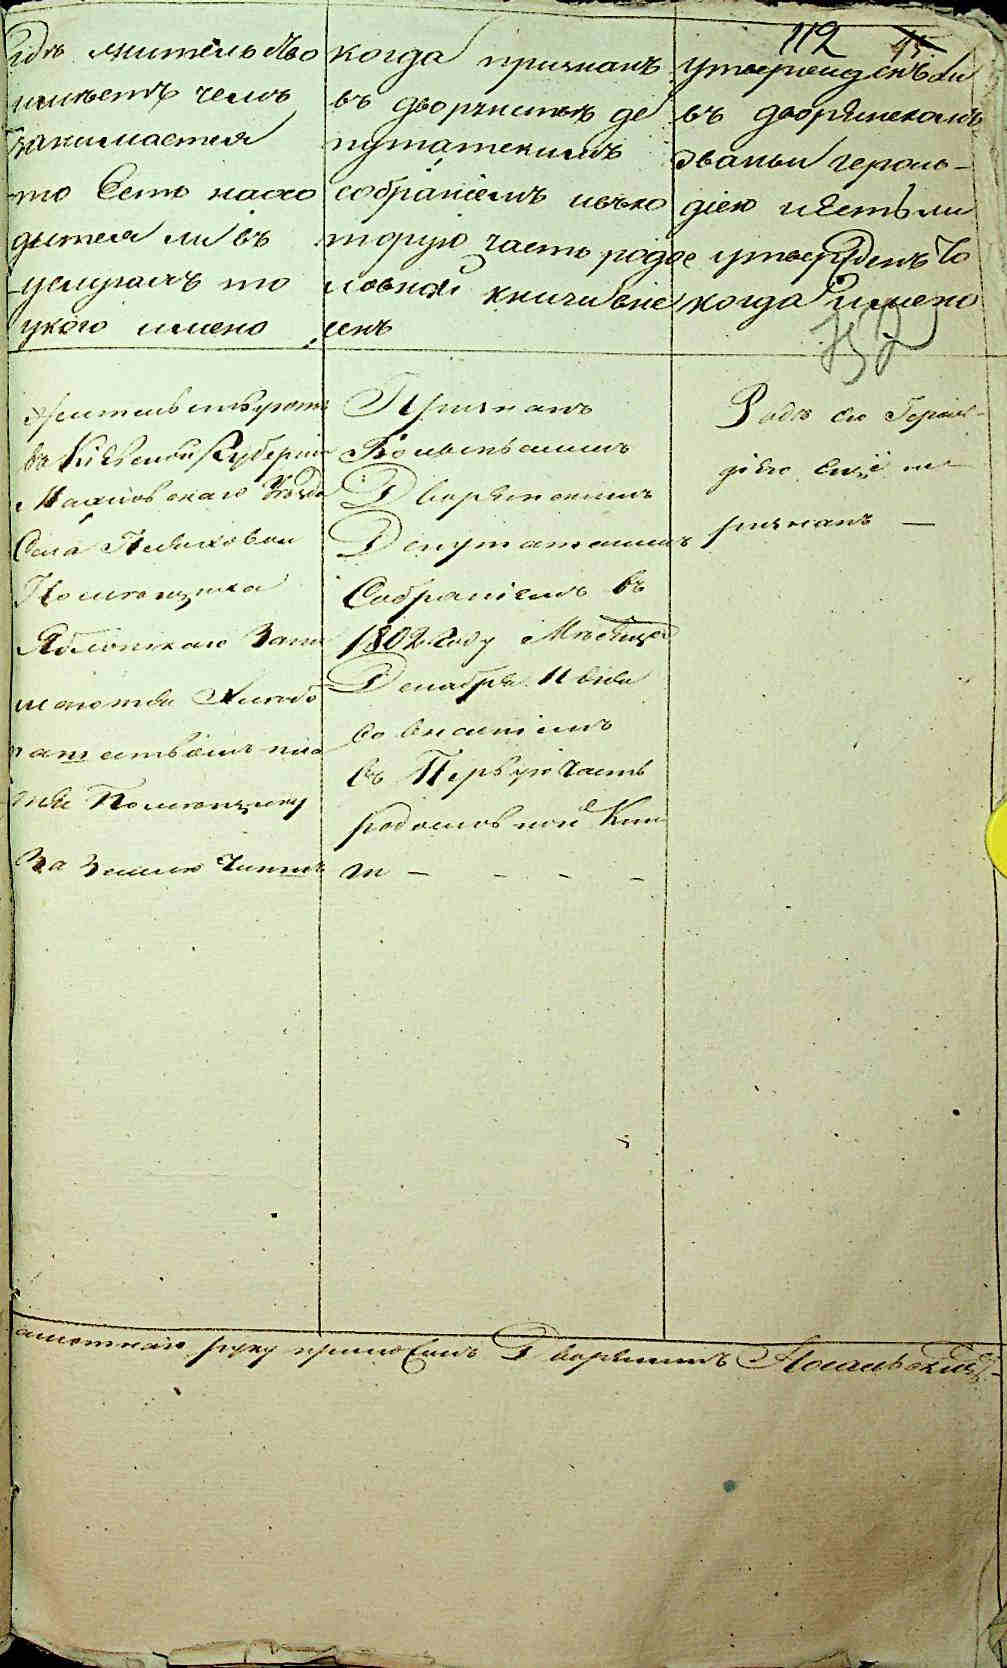 112 45
гдѣ жительство
имѣетъ чемъ
занимается
то есть нахо
дытся ли въ
услугахъ то
у кого имено
когда признанъ
въ дворянствѣ де
путатскимъ
собраніемъ и въ ко
торую часть родос
ловной книги вне
сенъ
утвержденъ ли
въ дворянскомъ
званыи героль-
діею и есть ли
утвержденъ то
когда имено
Жительствуетъ
въ Кіевской Губерніи
Махновскаго
Села
Помещика
Зани
мается Хлебо
пашествомъ пла
тя Помещику
За Землю Чиншъ
Признанъ
Дворянскимъ
Депутатскимъ
Собраніемъ въ
1802 году Месяца
Декабря 11 дня
со внесеніемъ
въ Первую Часть
родословной Кни
ги - - - -
Родъ сей Героль-
діею ещё не
признанъ —
руку приложилъ Дворянинъ